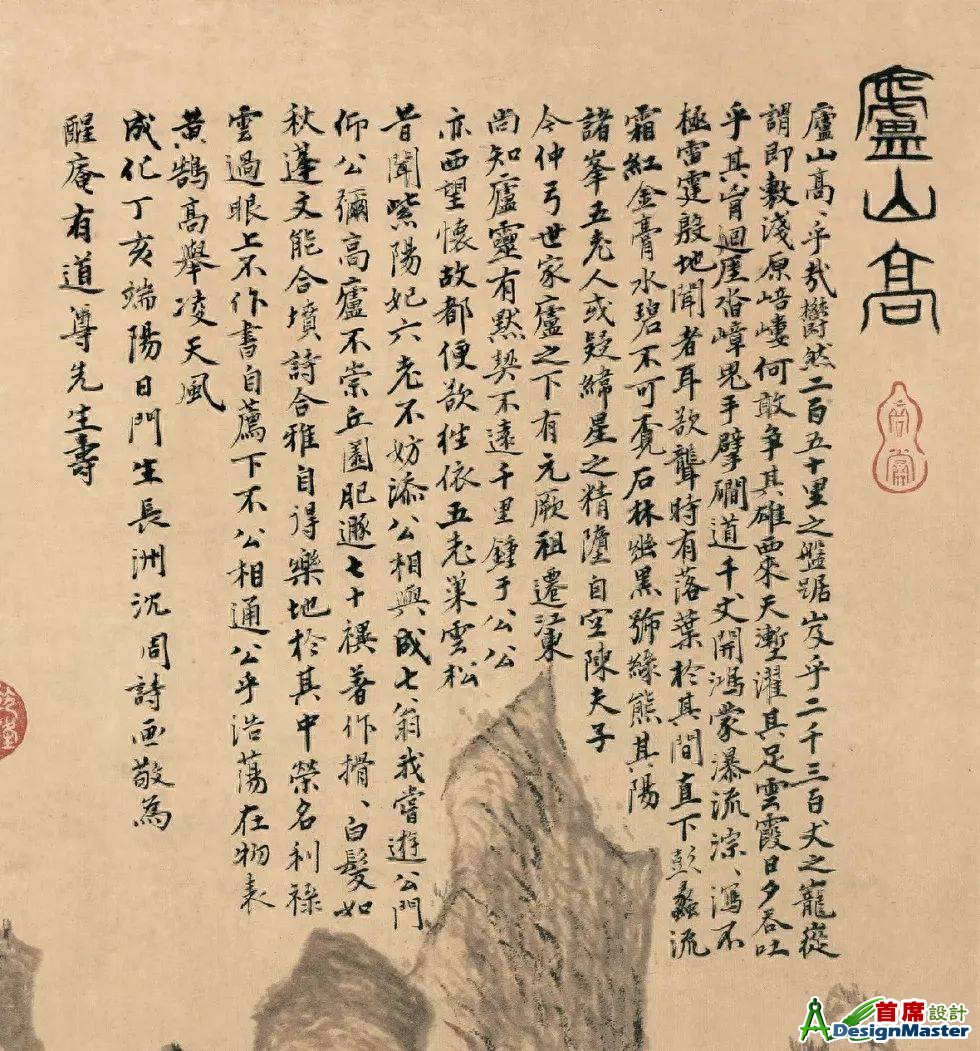 廬山高
廬山高、乎哉欝然二百五十里之盤踞岌乎二千三百丈之巃嵷
謂即敷淺原嶁何敢爭其雄西來天塹濯其足雲霞日夕吞吐
乎其胷迴厓沓嶂鬼手擘磵道千丈開鴻蒙瀑流淙、瀉不
極雷霆殷地聞者耳欲聾時有落葉於其間直下彭蠡流
霜紅金膏水碧不可覔石林幽黑號綠熊其陽
諸峯五老人或疑緯星之精墮自空陳夫子
今仲弓世家廬之下有元厥祖遷江東
尚知廬靈有默契不遠千里鍾于公公
亦西望懷故都便欲往依五老巢雲松
昔聞紫陽妃六老不妨添公相與成七翁我嘗遊公門
仰公彌高廬不崇丘園肥遯七十禩著作搰、白髮如
秋蓬文能合墳詩合雅自得樂地於其中榮名利祿
雲過眼上不作書自薦下不公相通公乎浩蕩在物表
黃鵠高舉凌天風
成化丁亥端陽日門生長洲沈周詩画敬為
醒庵有道尊先生壽
首席設計
DesignMaster